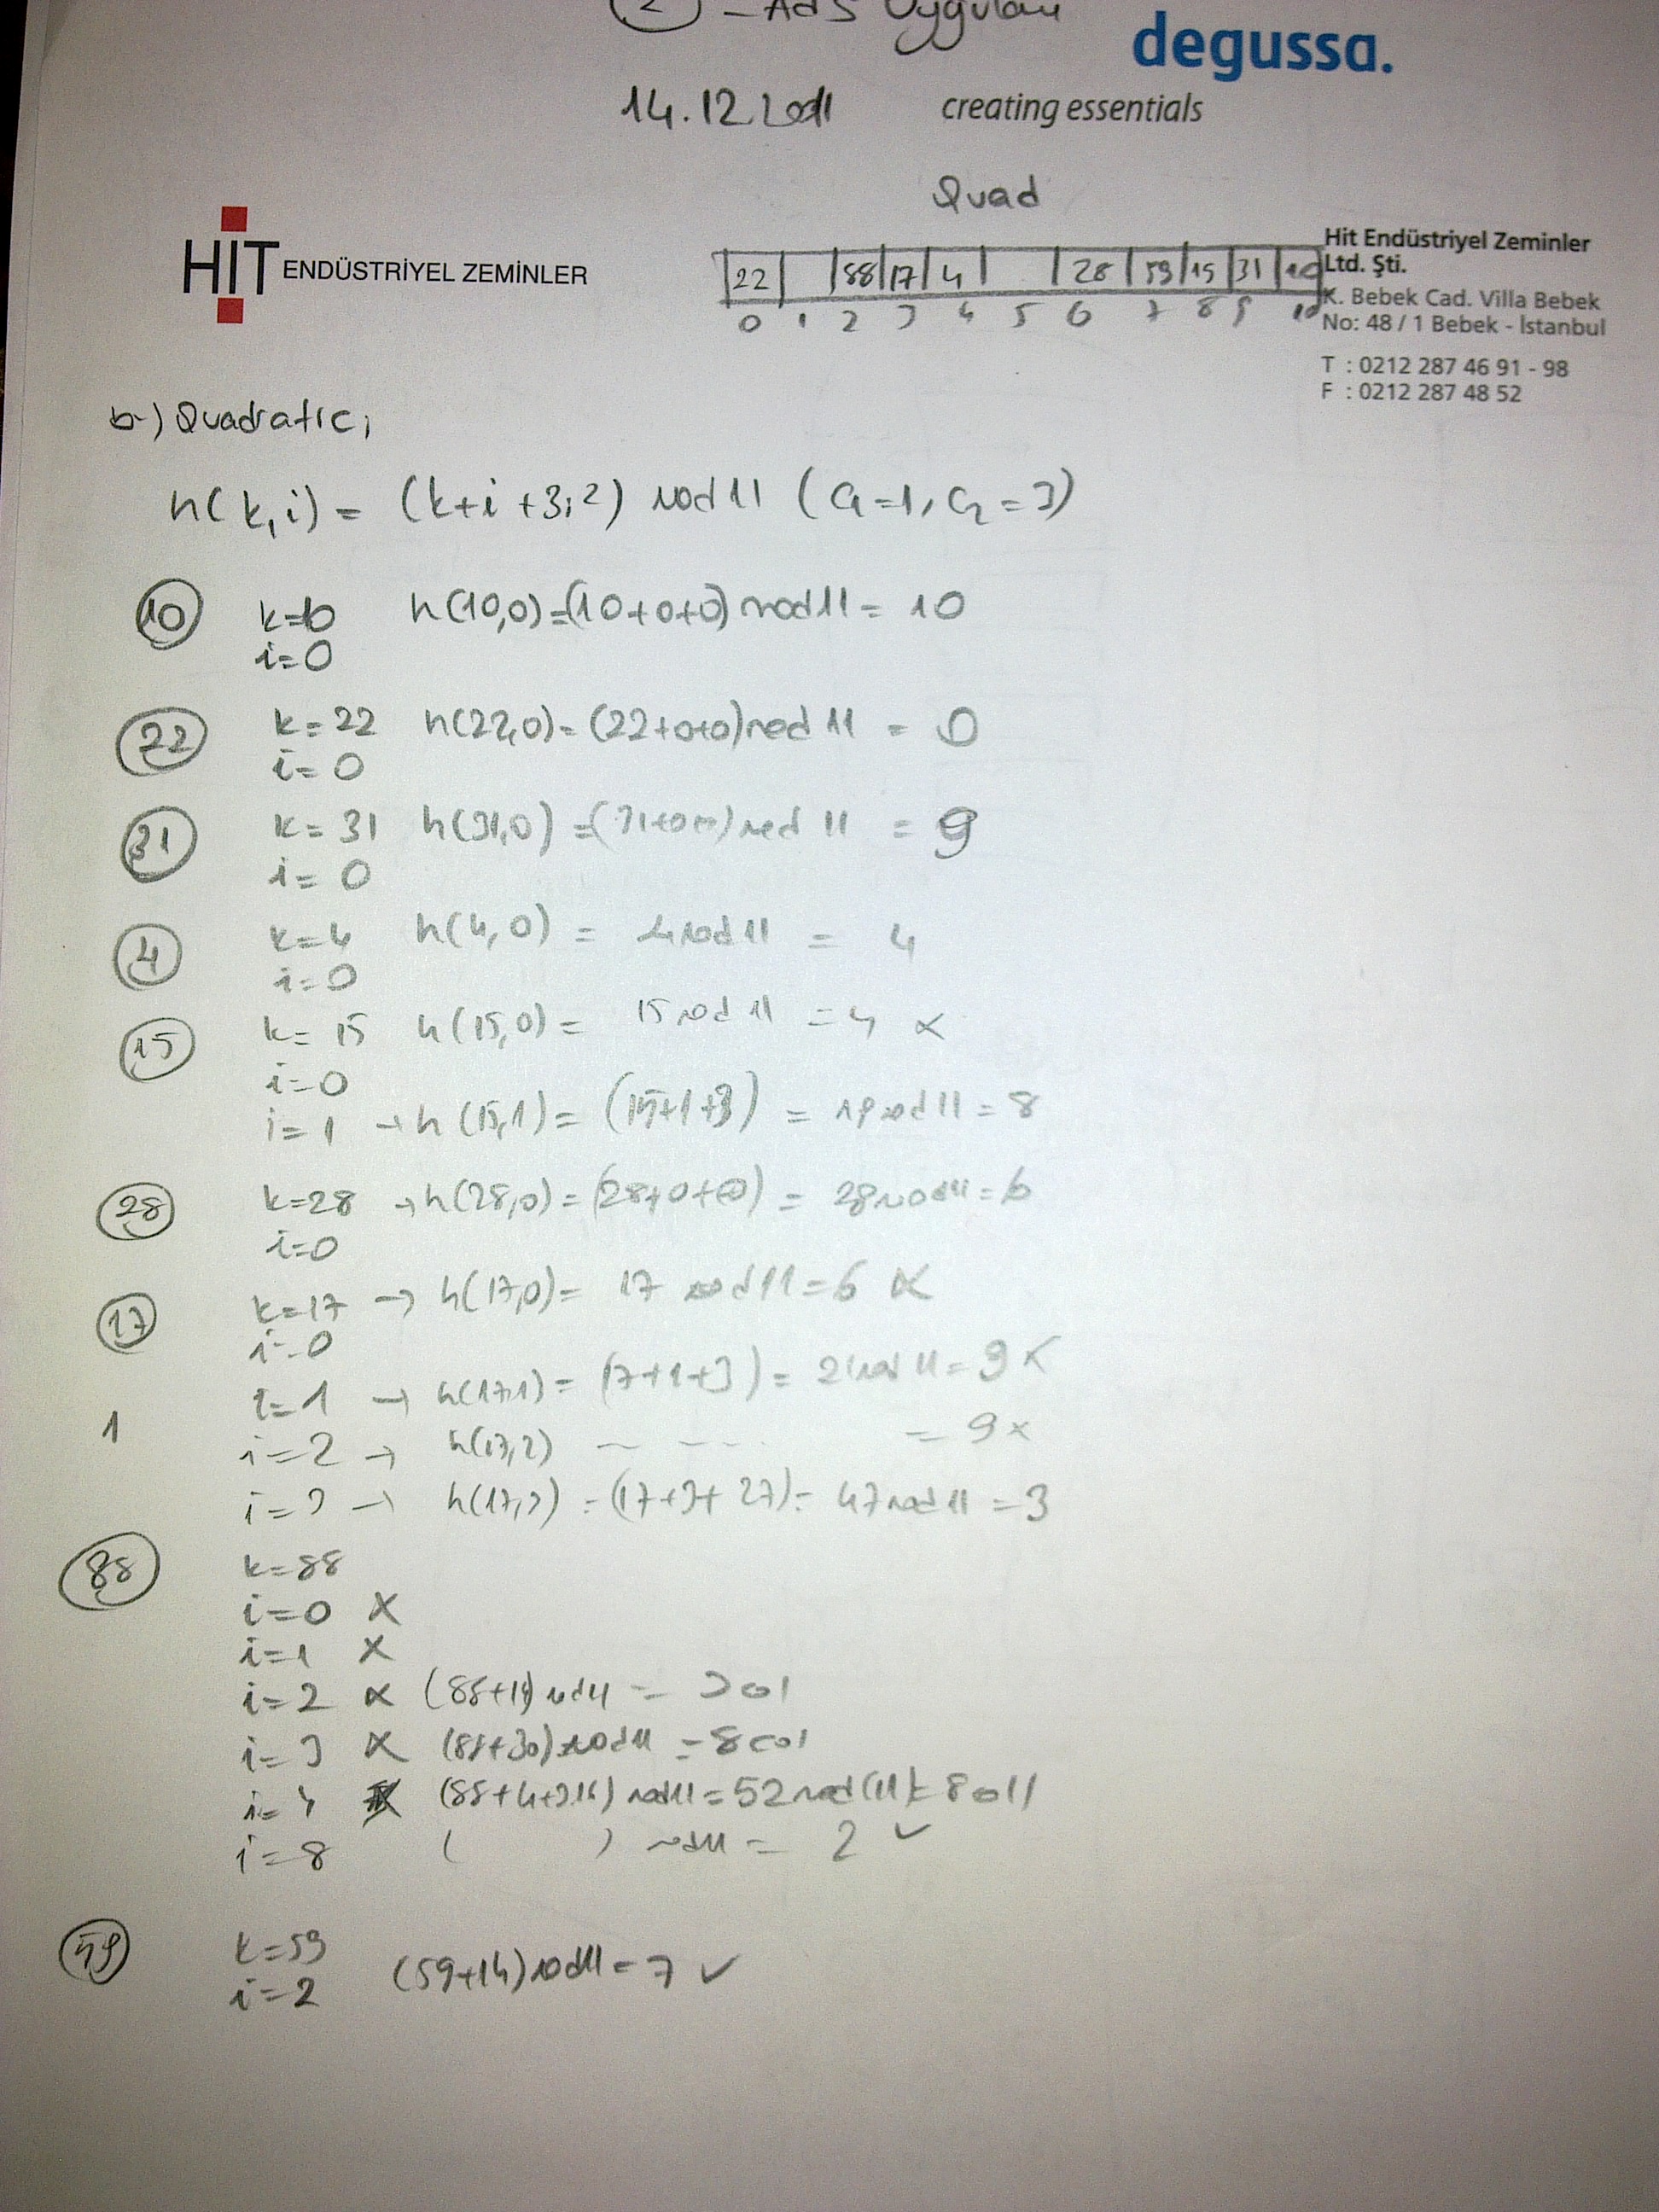 2 - Ads Uygulam
degussa.
14.12.2011
creating essentials
Quad
HİT ENDÜSTRİYEL ZEMİNLER
22 | | 88 | 17 | 4 | | 28 | 59 | 15 | 31 | 10
0 1 2 3 4 5 6 7 8 9 10
Hit Endüstriyel Zeminler
Ltd. Şti.
K. Bebek Cad. Villa Bebek
No: 48 / 1 Bebek - İstanbul
T : 0212 287 46 91 - 98
F : 0212 287 48 52
b-) Quadratic;
h(k,i) = (k+i+3i²) mod 11 (c₁=1, c₂=3)
10 k=10 h(10,0)=(10+0+0) mod 11 = 10
i=0
22 k=22 h(22,0)=(22+0+0) mod 11 = 0
i=0
31 k=31 h(31,0)=(31+0+0) mod 11 = 9
i=0
4 k=4 h(4,0) = 4 mod 11 = 4
i=0
15 k=15 h(15,0) = 15 mod 11 = 4 x
i=0
i=1 → h(15,1) = (15+1+3) = 19 mod 11 = 8
28 k=28 → h(28,0) = (28+0+0) = 28 mod 11 = 6
i=0
17 k=17 → h(17,0) = 17 mod 11 = 6 x
i=0
i=1 → h(17,1) = (17+1+3) = 21 mod 11 = 9 x
1
i=2 → h(17,2) - - - - = 9 x
i=3 → h(17,3) = (17+3+27) = 47 mod 11 = 3
88 k=88
i=0 x
i=1 x
i=2 x (88+14) mod 11 = 3 col
i=3 x (88+30) mod 11 = 8 col
i=4 x (88+4+3.16) mod 11 = 52 mod (11) = 8 coll
i=8 ( ) mod 11 = 2 ✓
59 k=59
i=2 (59+14) mod 11 = 7 ✓